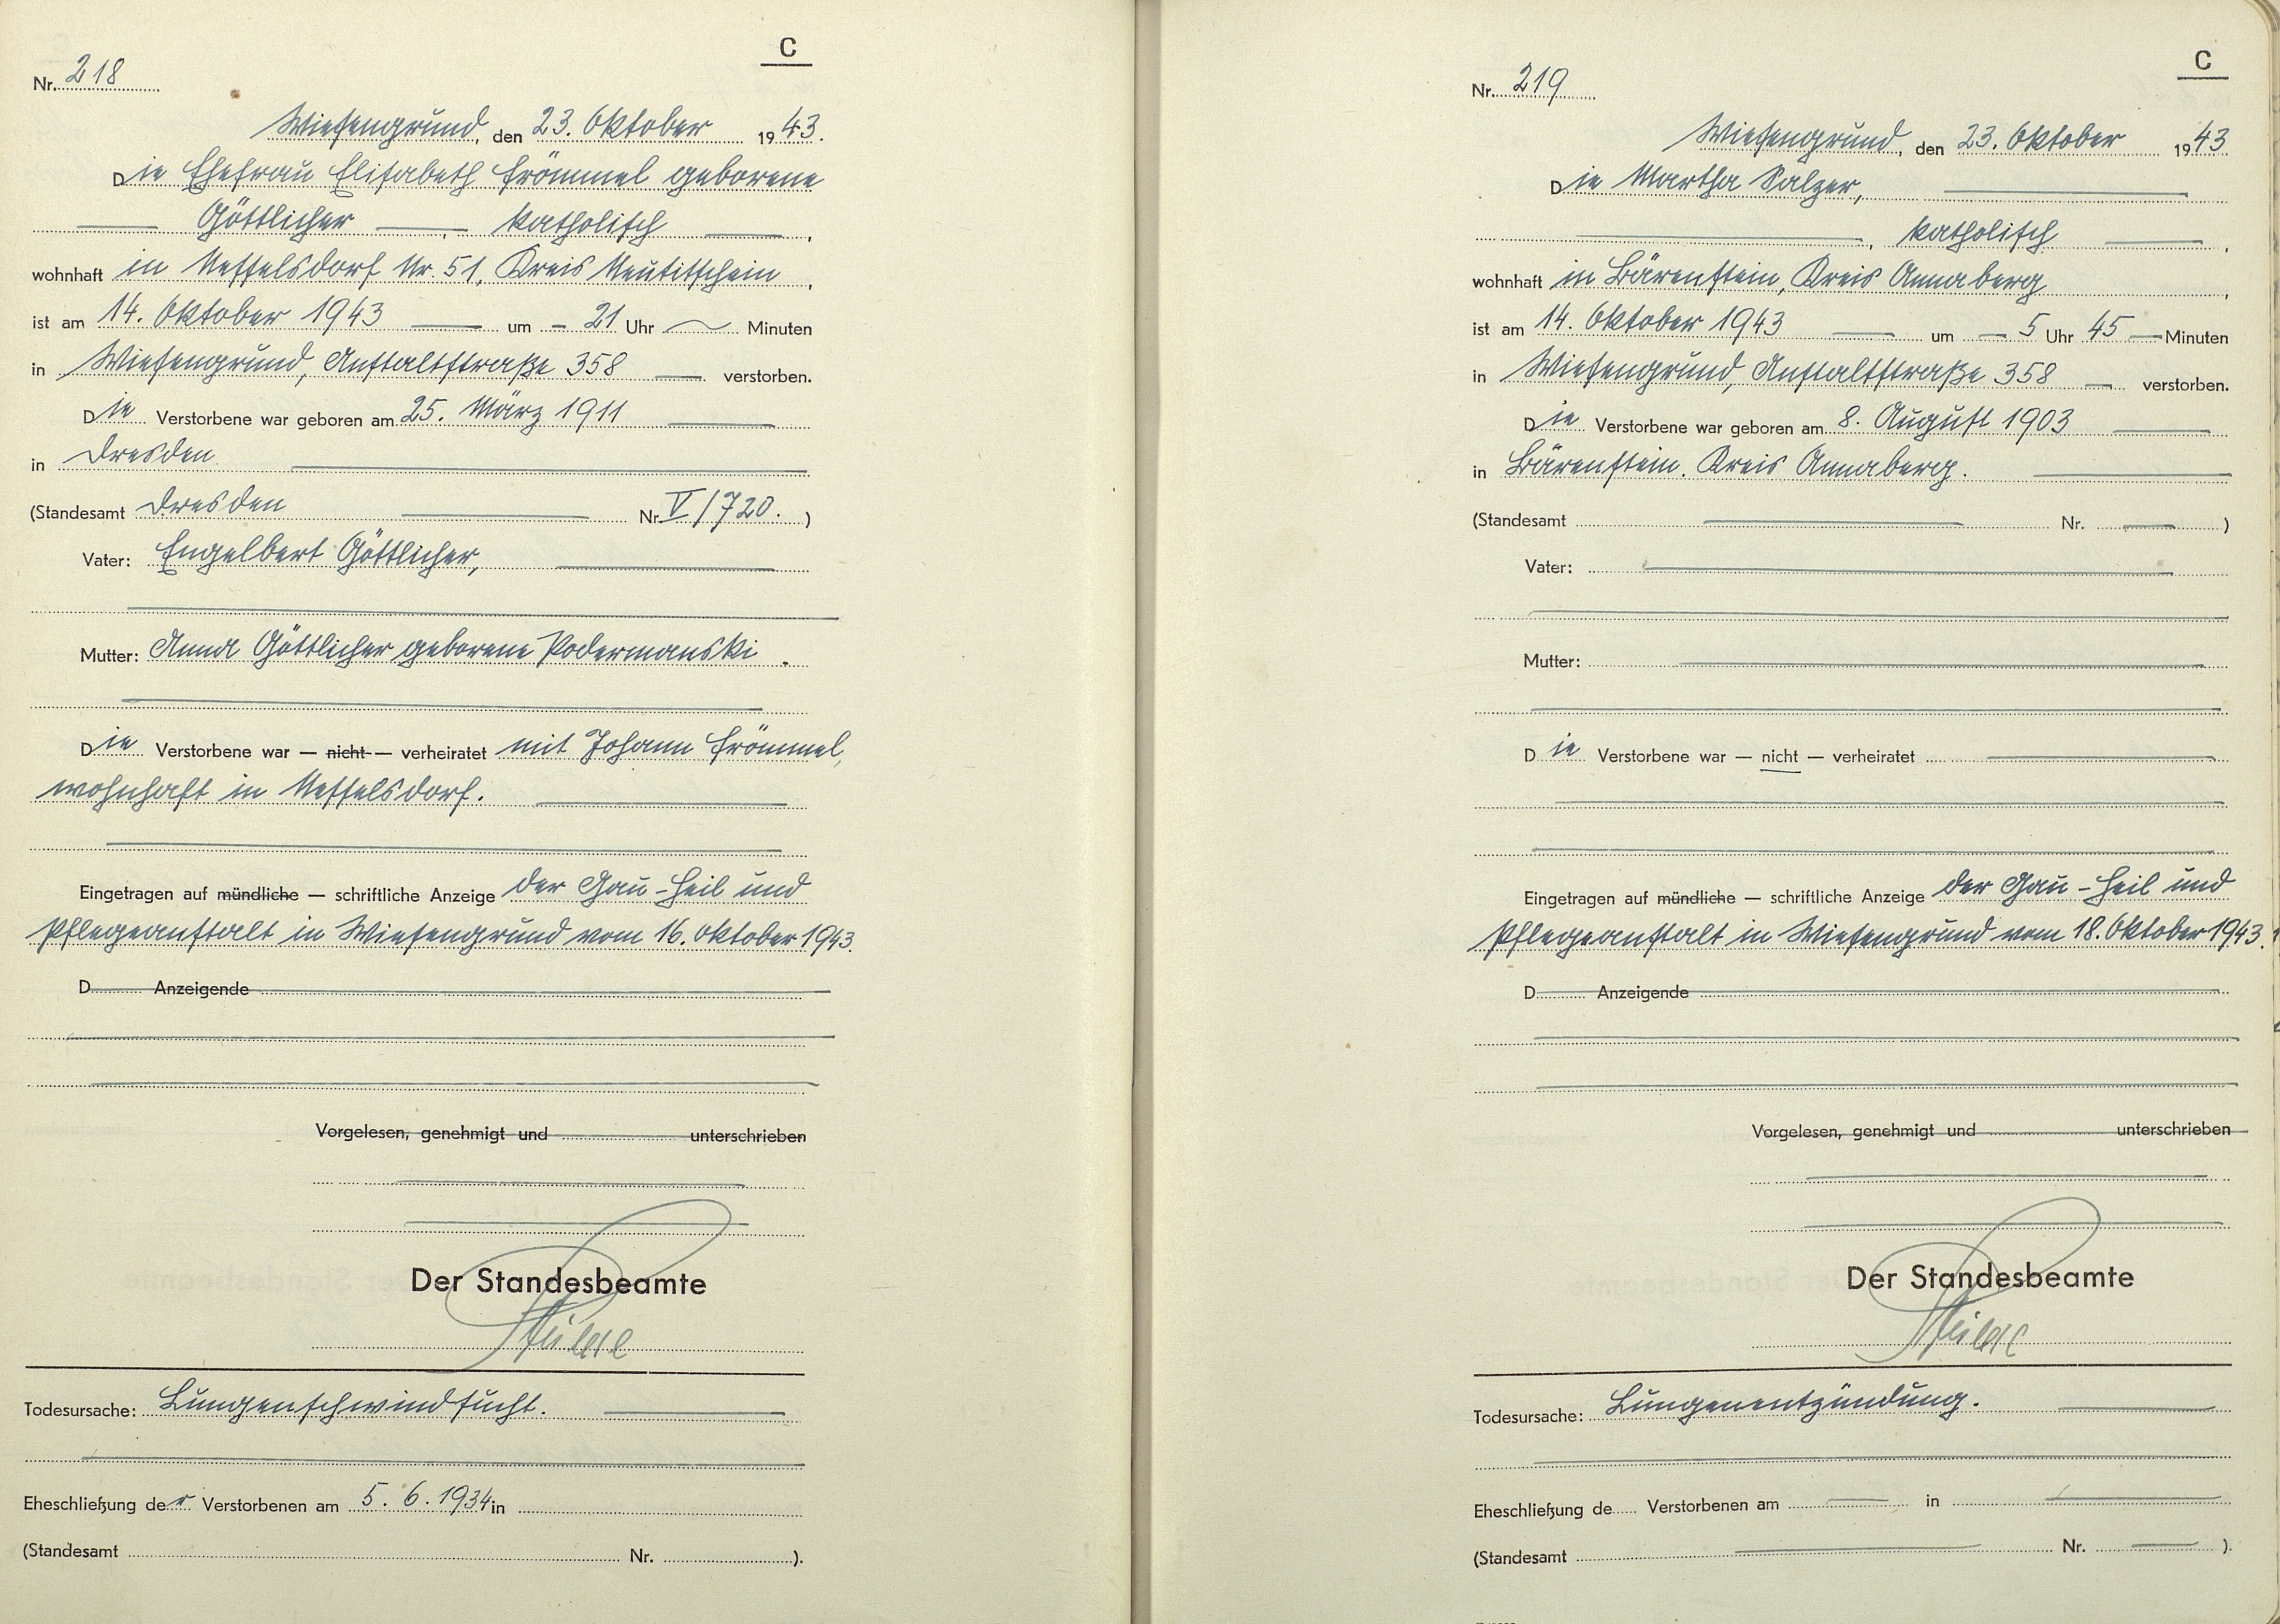 C
Nr. 218
Wiesengrund, den 23. Oktober 1943.
Die Ehefrau Elisabeth Frömmel geborene
Göttlicher, katholisch,
wohnhaft in Nesselsdorf Nr. 51, Kreis Neutitschein,
ist am 14. Oktober 1943 um 21 Uhr Minuten
in Wiesengrund, Anstaltstraße 358 verstorben.
Die Verstorbene war geboren am 25. März 1911
in Dresden
(Standesamt Dresden Nr. V/720.)
Vater: Engelbert Göttlicher,
Mutter: Anna Göttlicher geborene Podermanski.
Die Verstorbene war — nicht — verheiratet mit Johann Frömmel,
wohnhaft in Nesselsdorf.
Eingetragen auf mündliche — schriftliche Anzeige der Gau-Heil und
Pflegeanstalt in Wiesengrund vom 16. Oktober 1943.
D Anzeigende
Vorgelesen, genehmigt und unterschrieben
Der Standesbeamte
Todesursache: Lungenschwindsucht.
Eheschließung der Verstorbenen am 5. 6. 1934 in
(Standesamt Nr. ).
C
Nr. 219
Wiesengrund, den 23. Oktober 1943
Die Martha Salzer,
, katholisch,
wohnhaft in Bärenstein, Kreis Annaberg,
ist am 14. Oktober 1943 um 5 Uhr 45 Minuten
in Wiesengrund, Anstaltstraße 358 verstorben.
Die Verstorbene war geboren am 8. August 1903
in Bärenstein. Kreis Annaberg.
(Standesamt Nr. )
Vater:
Mutter:
Die Verstorbene war — nicht — verheiratet
Eingetragen auf mündliche — schriftliche Anzeige der Gau-Heil und
Pflegeanstalt in Wiesengrund vom 18. Oktober 1943.
D Anzeigende
Vorgelesen, genehmigt und unterschrieben
Der Standesbeamte
Todesursache: Lungenentzündung.
Eheschließung de Verstorbenen am in
(Standesamt Nr. ).